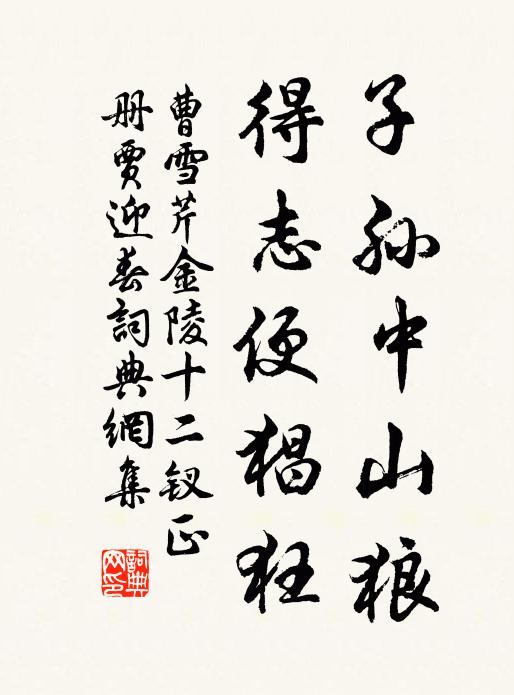 子孙中山狼
得志便猖狂
曹雪芹金陵十二钗正
册贾迎春詞典網集
詞典
网印